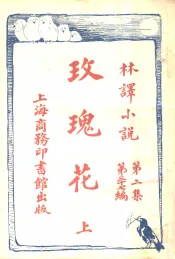 林譯小說
第二集
第三七編
玫瑰花
上
上海商務印書館出版